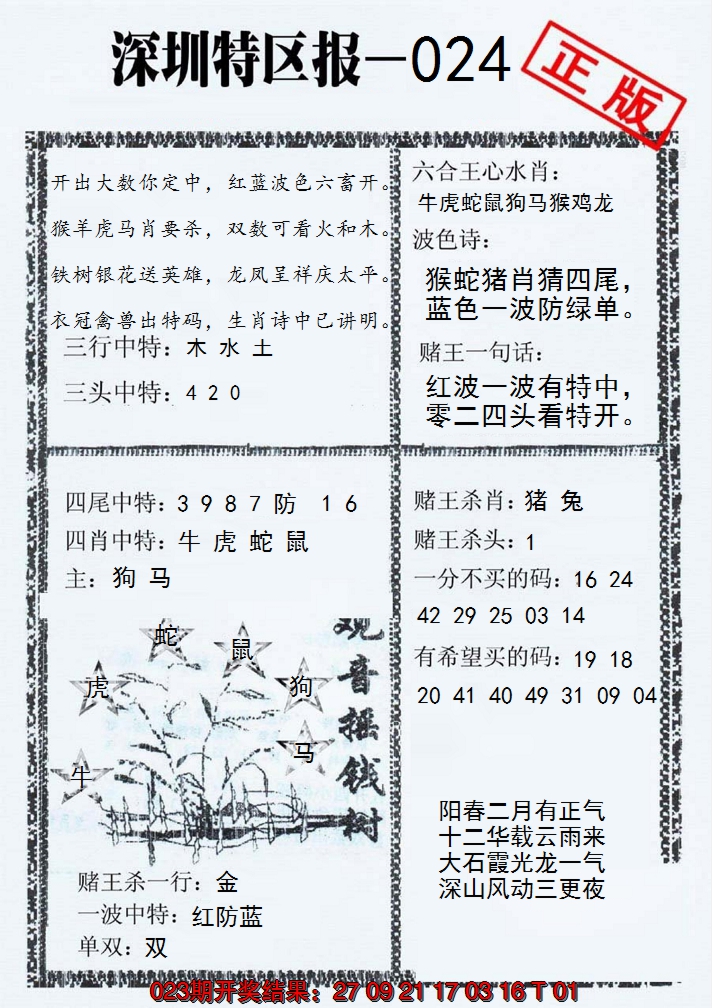 深圳特区报—024
正版
开出大数你定中，红蓝波色六畜开。
猴羊虎马肖要杀，双数可看火和木。
铁树银花送英雄，龙凤呈祥庆太平。
衣冠禽兽出特码，生肖诗中已讲明。
三行中特：木 水 土
三头中特：4 2 0
六合王心水肖：
牛虎蛇鼠狗马猴鸡龙
波色诗：
猴蛇猪肖猜四尾，
蓝色一波防绿单。
赌王一句话：
红波一波有特中，
零二四头看特开。
四尾中特：3 9 8 7 防 1 6
四肖中特：牛 虎 蛇 鼠
主：狗 马
蛇
鼠
虎
狗
马
牛
观音摇钱树
赌王杀一行：金
一波中特：红防蓝
单双：双
赌王杀肖：猪 兔
赌王杀头：1
一分不买的码：16 24
42 29 25 03 14
有希望买的码：19 18
20 41 40 49 31 09 04
阳春二月有正气
十二华载云雨来
大石霞光龙一气
深山风动三更夜
023期开奖结果：27 09 21 17 03 16 T 01